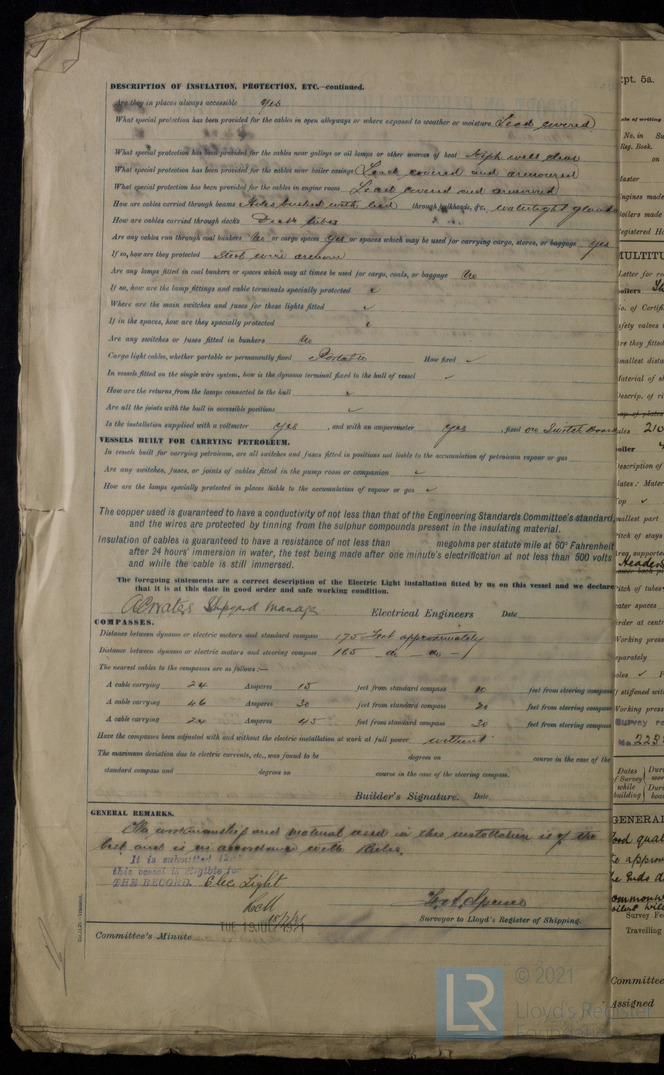 DESCRIPTION OF INSULATION, PROTECTION, ETC.—continued.
Are they in places always accessible yes
What special protection has been provided for the cables in open alleyways or where exposed to weather or moisture Lead covered
What special protection has been provided for the cables near galleys or oil lamps or other sources of heat Kept well clear
What special protection has been provided for the cables near boiler casings Lead covered and armoured
What special protection has been provided for the cables in engine room Lead covered and armoured
How are cables carried through beams Holes bushed with lead through bulkheads, &c. watertight glands
How are cables carried through decks Deck tubes
Are any cables run through coal bunkers No or cargo spaces yes or spaces which may be used for carrying cargo, stores, or baggage yes
If so, how are they protected Steel wire armour
Are any lamps fitted in coal bunkers or spaces which may at times be used for cargo, coals, or baggage No
If so, how are the lamp fittings and cable terminals specially protected ✓
Where are the main switches and fuses for these lights fitted ✓
If in the spaces, how are they specially protected ✓
Are any switches or fuses fitted in bunkers No
Cargo light cables, whether portable or permanently fixed Portable How fixed ✓
In vessels fitted on the single wire system, how is the dynamo terminal fixed to the hull of vessel ✓
How are the returns from the lamps connected to the hull ✓
Are all the joints with the hull in accessible positions ✓
Is the installation supplied with a voltmeter yes, and with an amperemeter yes, fixed on Switch Board
VESSELS BUILT FOR CARRYING PETROLEUM.
In vessels built for carrying petroleum, are all switches and fuses fitted in positions not liable to the accumulation of petroleum vapour or gas
Are any switches, fuses, or joints of cables fitted in the pump room or companion ✓
How are the lamps specially protected in places liable to the accumulation of vapour or gas ✓
The copper used is guaranteed to have a conductivity of not less than that of the Engineering Standards Committee's standard,
and the wires are protected by tinning from the sulphur compounds present in the insulating material.
Insulation of cables is guaranteed to have a resistance of not less than megohms per statute mile at 60° Fahrenheit
after 24 hours' immersion in water, the test being made after one minute's electrification at not less than 500 volts
and while the cable is still immersed.
The foregoing statements are a correct description of the Electric Light installation fitted by us on this vessel and we declare
that it is at this date in good order and safe working condition.
Shipyard Manager Electrical Engineers Date
COMPASSES.
Distance between dynamo or electric motors and standard compass 175 feet approximately
Distance between dynamo or electric motors and steering compass 165 do do
The nearest cables to the compasses are as follows:—
A cable carrying 24 Amperes 15 feet from standard compass 10 feet from steering compass
A cable carrying 46 Amperes 30 feet from standard compass 20 feet from steering compass
A cable carrying 24 Amperes 45 feet from standard compass 30 feet from steering compass
Have the compasses been adjusted with and without the electric installation at work at full power without
The maximum deviation due to electric currents, etc., was found to be degrees on course in the case of the
standard compass and degrees on course in the case of the steering compass.
Builder's Signature. Date
GENERAL REMARKS.
The workmanship and material used in this installation is of the
best and is in accordance with Rules.
It is submitted that
this vessel is eligible for
THE RECORD. Elec. Light
Surveyor to Lloyd's Register of Shipping.
TUE 19 JUL 1921
Committee's Minute
© 2021
LR Lloyd's Register
Foundation